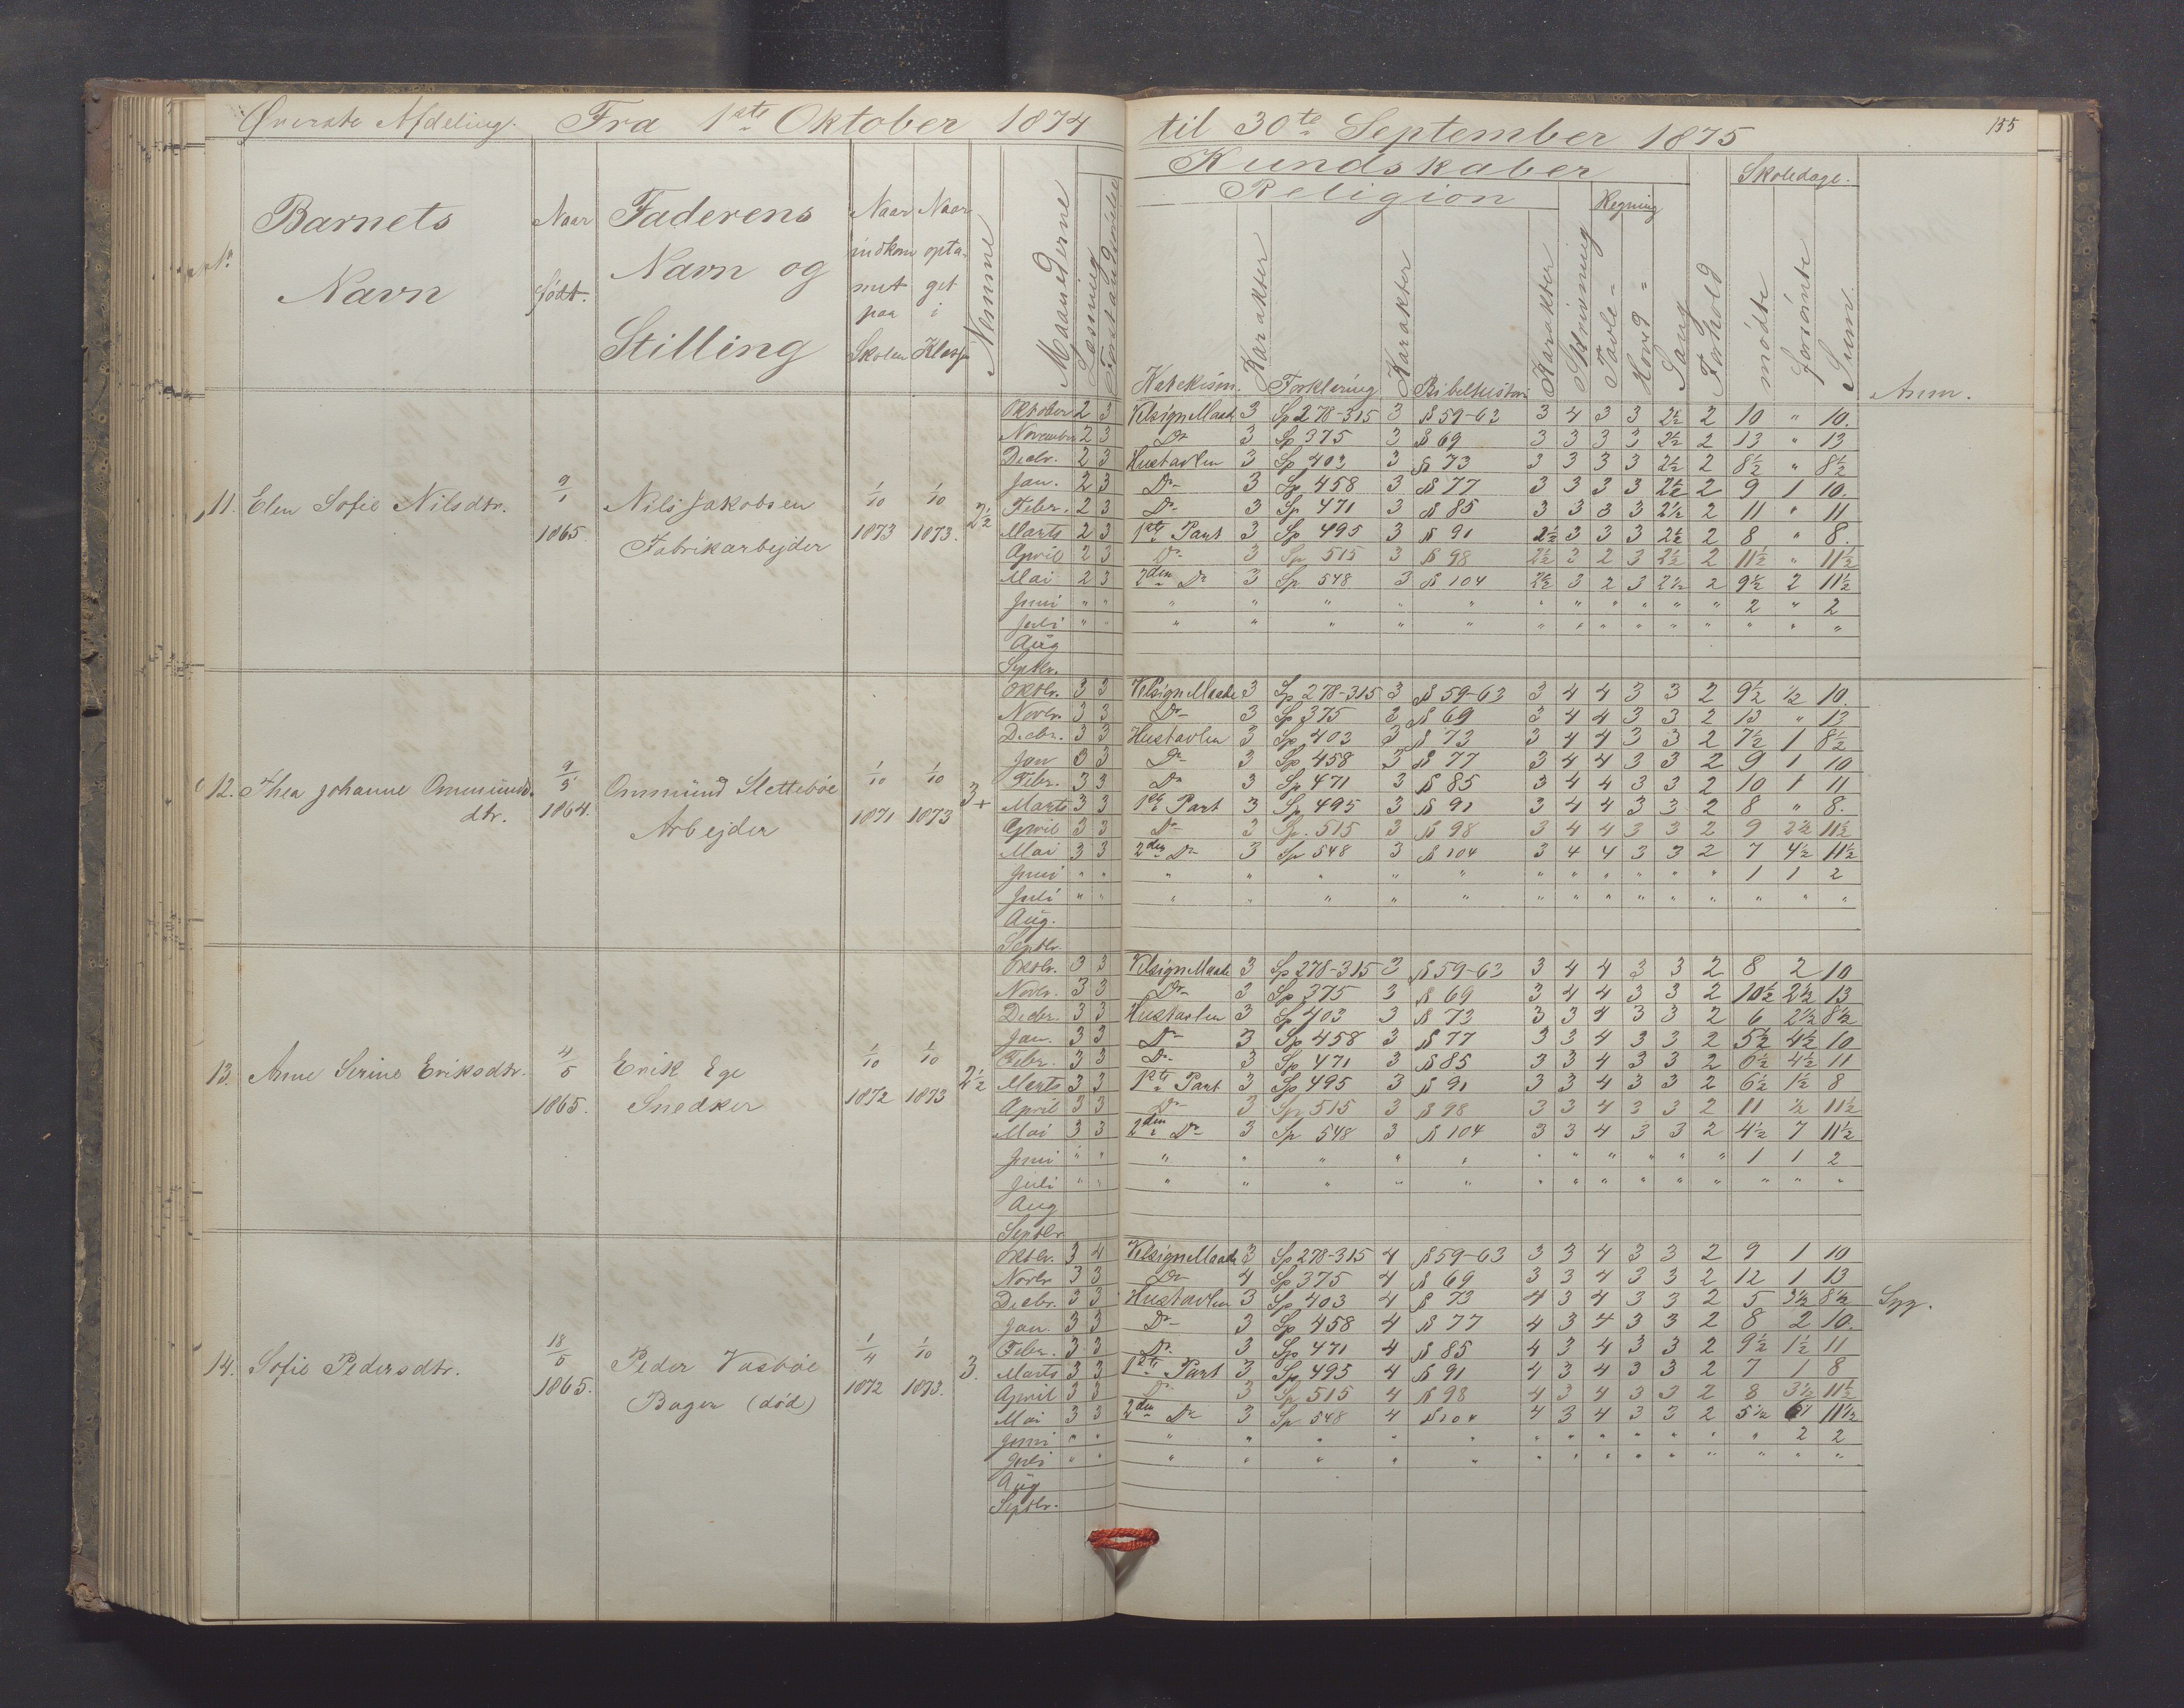 Øverste Afdeling. Fra 1ste Oktober 1874 til 30te September 1875 155
Kundskaber
Religion Regning Skoledage.
Barnets Navn
Naar født.
Faderens Navn og Stilling
Naar indkommet paa Skolen
Naar optaget i Klassen
Nemme
Maanederne
Læsning
Katekism. Karakter Forklaring Karakter Bibelhistorie Karakter Skrivning Tavle- Hoved " Sang Forhold mødte forsømte Sum. Anm.
11. Elen Sofie Nilsdtr. 9/1 1865. Nils Jakobsen Fabrikarbejder 1/10 1873 1/10 1873. 2½
Oktober 2 3 Velsign. Maade 3 Sp 278-315 3 § 59-63 3 4 3 3 2½ 2 10 " 10.
November 2 3 Do 3 Sp 375 3 § 69 3 3 3 3 2½ 2 13 " 13
Decbr. 2 3 Hustavlen 3 Sp 403 3 § 73 3 3 3 3 2½ 2 8½ " 8½
Jan. 2 3 Do 3 Sp 458 3 § 77 3 3 3 3 2½ 2 9 1 10.
Febr. 2 3 Do 3 Sp 471 3 § 85 3 3 3 3 2½ 2 11 " 11
Marts 2 3 1ste Part 3 Sp 495 3 § 91 2½ 3 3 3 2½ 2 8 " 8.
April 2 3 Do 3 Sp 515 3 § 98 2½ 3 2 3 2½ 2 11½ " 11½
Mai 2 3 2den Do 3 Sp 548 3 § 104 2½ 3 2 3 2½ 2 9½ 2 11½
Juni " " " " " " " " " " " " " 2 " 2
Juli " " " " " " " " " " " " " " " "
Aug
Septbr.
12. Thea Johanne Ommundsdtr. 9/5 1864. Ommund Slettebøe Arbejder 1/10 1871 1/10 1873 3+
Oktbr. 3 3 Velsign. Maade 3 Sp 278-315 3 § 59-63 3 4 4 3 3 2 9½ ½ 10.
Novbr. 3 3 Do 3 Sp 375 3 § 69 3 4 4 3 3 2 13 " 13
Decbr. 3 3 Hustavlen 3 Sp 403 3 § 73 3 4 4 3 3 2 7½ 1 8½
Jan 3 3 Do 3 Sp 458 3 § 77 3 4 4 3 3 2 9 1 10
Febr. 3 3 Do 3 Sp 471 3 § 85 3 4 4 3 3 2 10 1 11
Marts 3 3 1ste Part 3 Sp 495 3 § 91 3 4 4 3 3 2 8 " 8.
April 3 3 Do 3 Sp. 515 3 § 98 3 4 4 3 3 2 9 2½ 11½
Mai 3 3 2den Do 3 Sp 548 3 § 104 3 4 4 3 3 2 7 4½ 11½
Juni " " " " " " " " " " " " " 1 1 2
Juli " " " " " " " " " " " " " " " "
Aug.
Septbr.
13. Anne Serine Eriksdtr. 4/5 1865. Erik Ege Snedker 1/10 1872 1/10 1873 2½
Oktbr. 3 3 Velsign. Maade 3 Sp 278-315 3 § 59-63 3 4 4 3 3 2 8 2 10
Novbr. 3 3 Do 3 Sp 375 3 § 69 3 4 4 3 3 2 10½ 2½ 13
Decbr. 3 3 Hustavlen 3 Sp 403 3 § 73 3 3 4 3 3 2 6 2½ 8½
Jan. 3 3 Do 3 Sp 458 3 § 77 3 3 4 3 3 2 5½ 4½ 10
Febr. 3 3 Do 3 Sp 471 3 § 85 3 3 4 3 3 2 6½ 4½ 11
Marts 3 3 1ste Part 3 Sp 495 3 § 91 3 3 4 3 3 2 6½ 1½ 8
April 3 3 Do 3 Sp 515 3 § 98 3 3 4 3 3 2 11 ½ 11½
Mai 3 3 2den Do 3 Sp 548 3 § 104 3 3 4 3 3 2 4½ 7 11½
Juni " " " " " " " " " " " " " 1 1 2
Juli " " " " " " " " " " " " " " " "
Aug
Septbr.
14. Sofie Pedersdtr. 18/5 1865. Peder Vasbøe Bager (død) 1/4 1872 1/10 1873. 3.
Oktbr. 3 4 Velsign. Maade 3 Sp 278-315 4 § 59-63 3 3 4 3 3 2 9 1 10
Novbr 3 3 Do 4 Sp 375 4 § 69 3 3 4 3 3 2 12 1 13
Decbr. 3 3 Hustavlen 3 Sp 403 4 § 73 4 3 4 3 3 2 5 3½ 8½ Syg.
Jan. 3 3 Do 3 Sp 458 4 § 77 4 3 4 3 3 2 8 2 10.
Febr. 3 3 Do 3 Sp 471 4 § 85 4 3 4 3 3 2 9½ 1½ 11
Marts 3 3 1ste Part 3 Sp 495 4 § 91 4 3 4 3 3 2 7 1 8
April 3 3 Do 3 Sp 515 4 § 98 4 3 4 3 3 2 8 3½ 11½
Mai 3 3 2den Do 3 Sp 548 4 § 104 4 3 4 3 3 2 5½ 11½
Juni " " " " " " " " " " " " " " 2 2
Juli " " " " " " " " " " " " " " " "
Aug
Septbr.